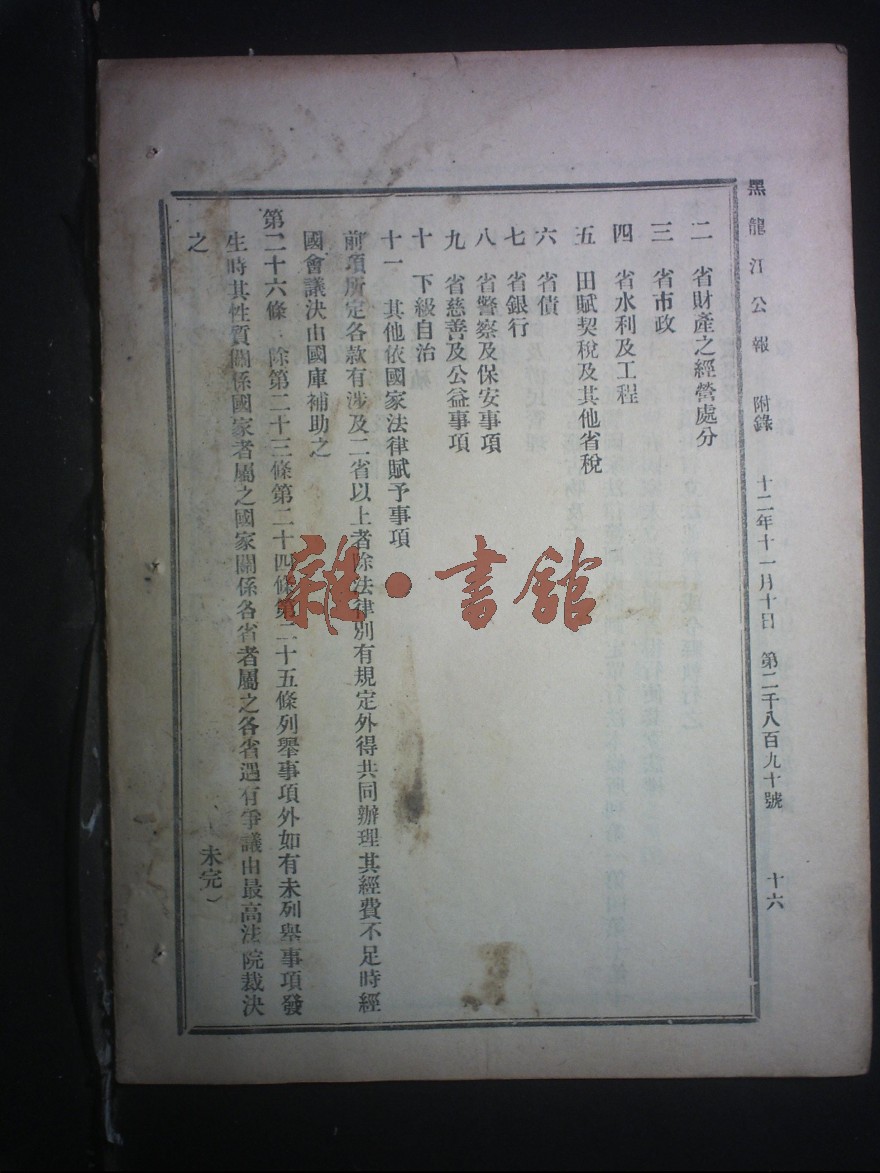 黑龍江公報 附錄 十二年十一月十日 第二千八百九十號 十六
二 省財產之經營處分
三 省市政
四 省水利及工程
五 田賦契稅及其他省稅
六 省債
七 省銀行
八 省警察及保安事項
九 省慈善及公益事項
十 下級自治
十一 其他依國家法律賦予事項
前項所定各款有涉及二省以上者除法律別有規定外得共同辦理其經費不足時經
國會議決由國庫補助之
第二十六條 除第二十三條第二十四條第二十五條列舉事項外如有未列舉事項發
生時其性質關係國家者屬之國家關係各省者屬之各省遇有爭議由最高法院裁決
之 未完）
雜·書館